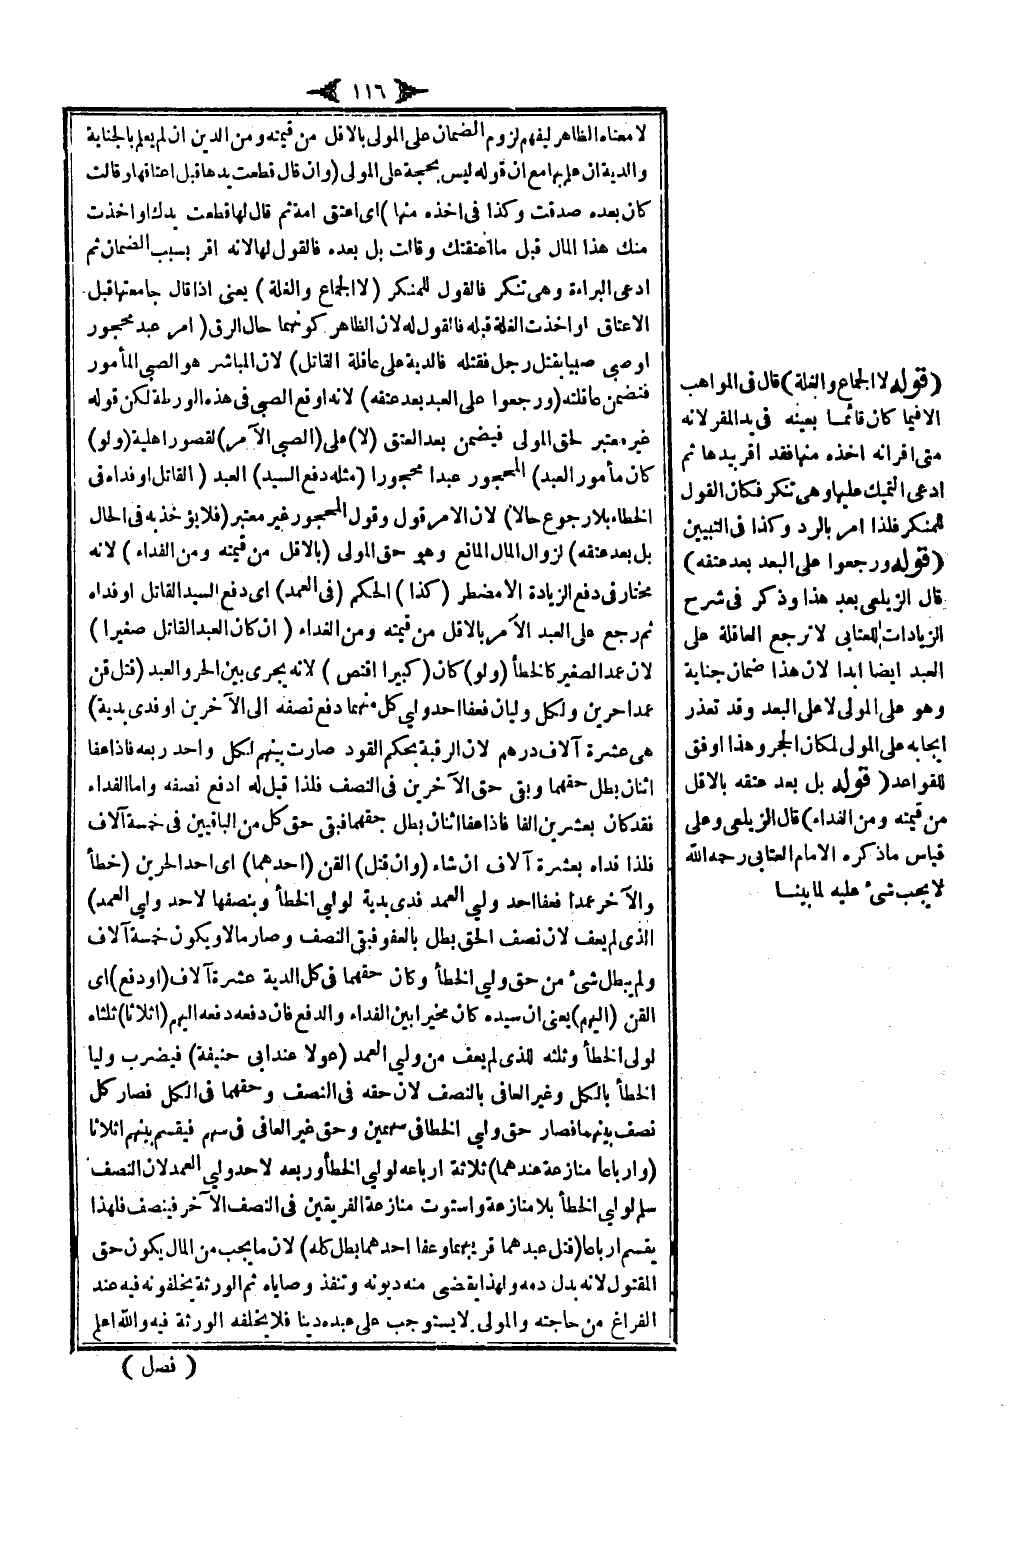 ١١٦
لا معناه الظاهر ليفهم لزوم الضمان على المولى بالاقل من قيمته ومن الدين ان لم يعلم بالجناية
والدية ان علم بها مع ان قوله ليس بحجة على المولى (وان قال قطعت يدها قبل اعتاقها وقالت
كان بعده صدقت وكذا فى اخذه منها) اى اعتق امة ثم قال لها قطعت يدك او اخذت
منك هذا المال قبل ما اعتقتك وقالت بل بعده فالقول لها لانه اقر بسبب الضمان ثم
ادعى البراءة وهى تنكر فالقول للمنكر (لا الجماع والغلة) يعنى اذا قال جامعتها قبل
الاعتاق او اخذت الغلة قبله فالقول له لان الظاهر كونهما حال الرق (امر عبد محجور
او صبى صبيا بقتل رجل فقتله فالدية على عاقلة القاتل) لان المباشر هو الصبى المأمور
فتضمن عاقلته (ورجعوا على العبد بعد عتقه) لانه اوقع الصبى فى هذه الورطة لكن قوله
غير معتبر لحق المولى فيضمن بعد العتق (لا) على (الصبى الآمر) لقصور اهلية (ولو)
كان مأمور العبد) المحجور عبدا محجورا (مثله دفع السيد) العبد (القاتل او فداه فى
الخطاء بلا رجوع حالا) لان الامر قول وقول المحجور غير معتبر (فلا يؤخذ به فى الحال
بل بعد عتقه) لزوال المال المانع وهو حق المولى (بالاقل من قيمته ومن الفداء) لانه
مختار فى دفع الزيادة لا مضطر (كذا) الحكم (فى العمد) اى دفع السيد القاتل او فداه
ثم رجع على العبد الآمر بالاقل من قيمته ومن الفداء (ان كان العبد القاتل صغيرا)
لان عمد الصغير كالخطأ (ولو) كان (كبيرا اقتص) لانه يجرى بين الحر والعبد (قتل قن
عمدا حرين ولكل وليان فعفا احد وليى كل منهما دفع نصفه الى الآخرين او فدى بدية)
هى عشرة آلاف درهم لان الرقبة بحكم القود صارت بينهم لكل واحد ربعه فاذا عفا
اثنان بطل حقهما وبقى حق الآخرين فى النصف فلذا قيل له ادفع نصفه واما الفداء
فقد كان بعشرين الفا فاذا عفا اثنان بطل حقهما فبقى حق كل من الباقيين فى خمسة آلاف
فلذا فداه بعشرة آلاف ان شاء (وان قتل) القن (احدهما) اى احد الحرين (خطأ
والآخر عمدا فعفا احد وليى العمد فدى بدية لوليى الخطأ وبنصفها لاحد وليى العمد)
الذى لم يعف لان نصف الحق بطل بالعفو فبقى النصف وصار مالا ويكون خمسة آلاف
ولم يبطل شئ من حق وليى الخطأ وكان حقهما فى كل الدية عشرة آلاف (او دفع) اى
القن (اليهم) يعنى ان سيده كان مخيرا بين الفداء والدفع فان دفعه دفعه اليهم (اثلاثا) ثلثاه
لولى الخطأ وثلثه للذى لم يعف من وليى العمد (عولا عند ابى حنيفة) فيضرب وليا
الخطأ بالكل وغير العافى بالنصف لان حقه فى النصف وحقهما فى الكل فصار كل
نصف بينهما فصار حق وليى الخطا فى سهمين وحق غير العافى فى سهم فيقسم بينهم اثلاثا
(وارباعا منازعة عندهما) ثلاثة ارباعه لوليى الخطأ وربعه لاحد وليى العمد لان النصف
سلم لوليى الخطأ بلا منازعة واستوت منازعة الفريقين فى النصف الآخر فينصف فلهذا
يقسم ارباعا (قتل عبدهما قريبهما وعفا احدهما بطل كله) لان ما يجب من المال يكون حق
المقتول لانه بدل دمه ولهذا يقضى منه ديونه وتنفذ وصاياه ثم الورثة يخلفونه فيه عند
الفراغ من حاجته والمولى لا يستوجب على عبده دينا فلا يخلفه الورثة فيه والله اعلم
(فصل)
(قوله لا الجماع والغلة) قال فى المواهب
الا فيما كان قائما بعينه فى يد المقر لانه
متى اقر انه اخذه منها فقد اقر بيدها ثم
ادعى التمليك عليها وهى تنكر فكان القول
للمنكر فلذا امر بالرد وكذا فى التبيين
(قوله ورجعوا على العبد بعد عتقه)
قال الزيلعى بعد هذا وذكر فى شرح
الزيادات للعتابى لا ترجع العاقلة على
العبد ايضا ابدا لان هذا ضمان جناية
وهو على المولى لا على العبد وقد تعذر
ايجابه على المولى لمكان الحجر وهذا اوفق
للقواعد (قوله بل بعد عتقه بالاقل
من قيمته ومن الفداء) قال الزيلعى وعلى
قياس ما ذكره الامام العتابى رحمه الله
لا يجب شئ عليه لما بينا